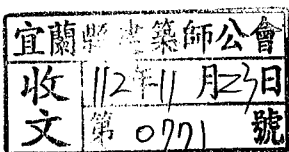 宜蘭縣建築師公會
收文
112年11月23日
第0771號